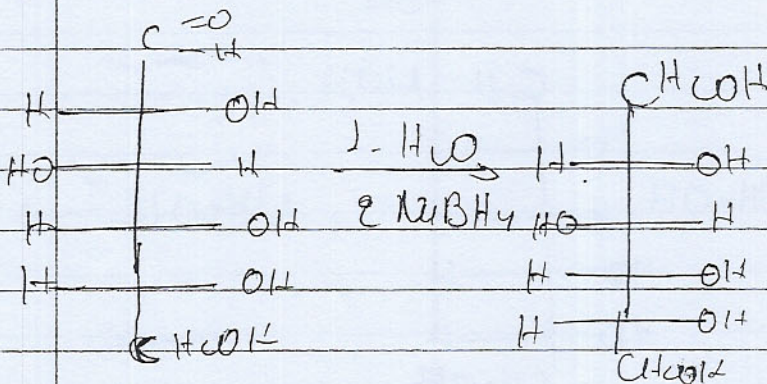 C =O
-H
H OH
HO H
H OH
H OH
CH₂OH
1- H₂O
2 NaBH4
CH₂OH
H OH
HO H
H OH
H OH
CH₂OH